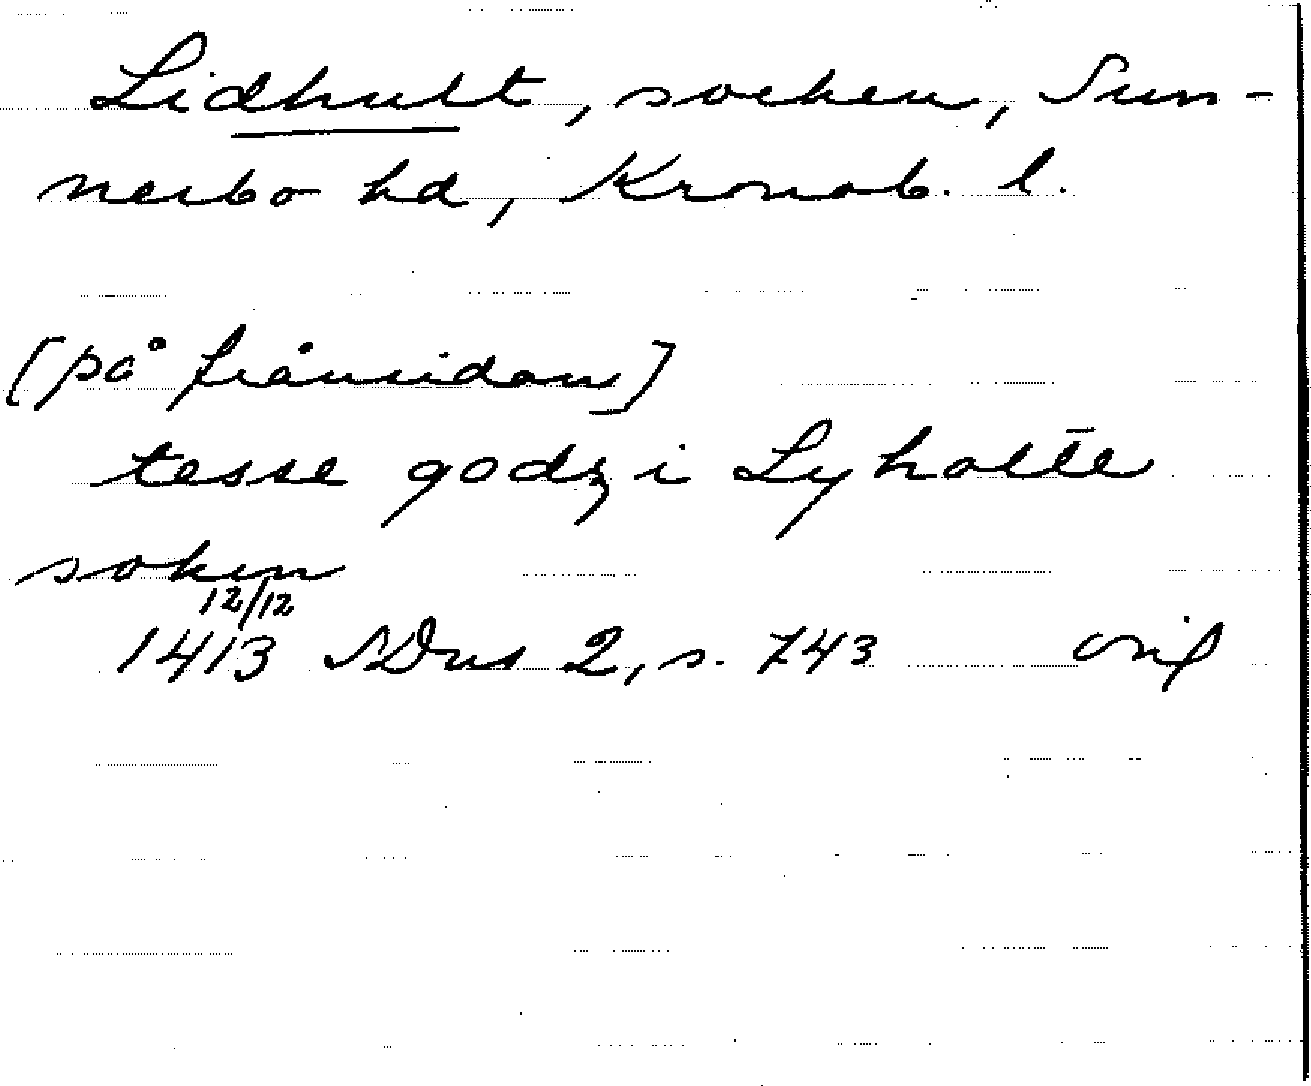 Lidhult, socken, Sun-
nerbo hd, Kronob. l.
[på frånsidan]
tesse godz i Lyholte
soken
12/12
1413 SDns 2, s. 743 orig